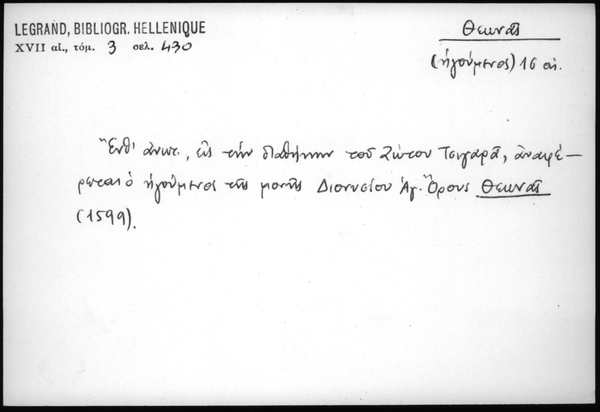 LEGRAND, BIBLIOGR. HELLENIQUE
XVII αἰ., τόμ. 3 σελ. 430
Θεωνᾶς
(ἡγούμενος) 16 αἰ.
Ἔνθ' ἀνωτ., εἰς τὴν διαθήκην τοῦ Ζώτου Τσιγαρᾶ, ἀναφέ-
ρεται ὁ ἡγούμενος τῆς μονῆς Διονυσίου Ἁγ. Ὄρους Θεωνᾶς
(1599).